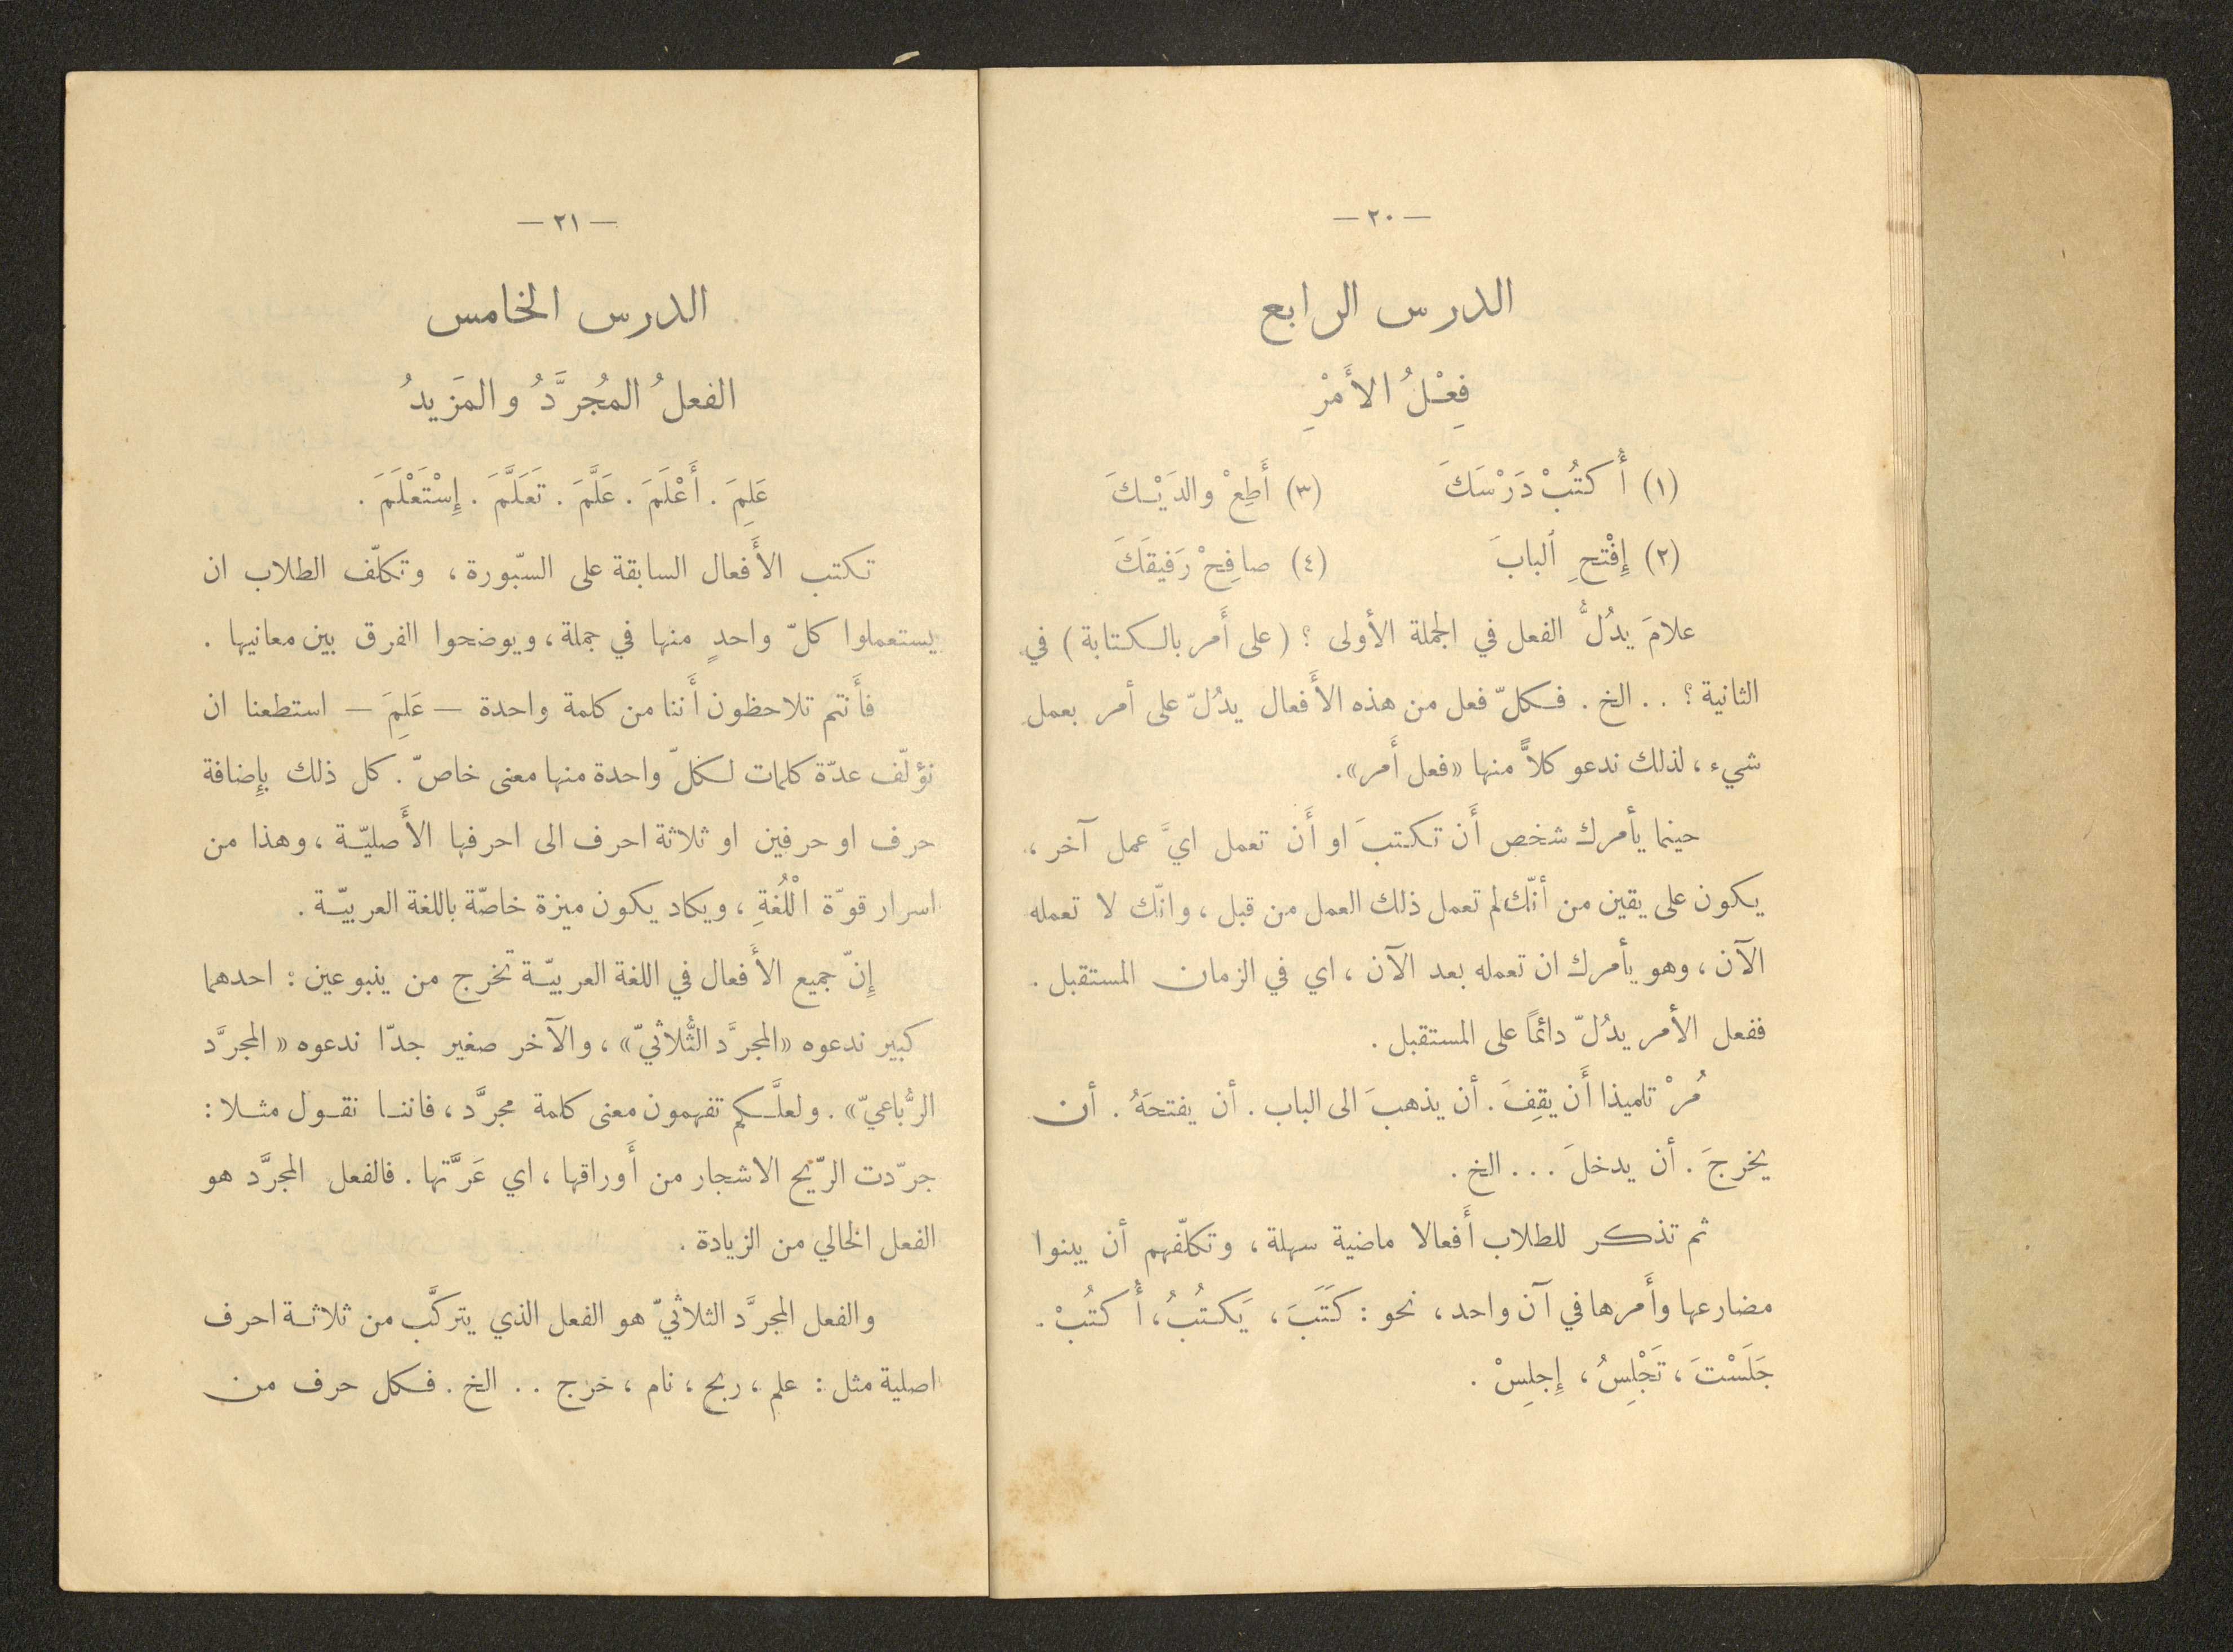 — ٢٠ —
الدرس الرابع
فِعْلُ الأَمْرِ
(١) أُكتُبْ دَرْسَكَ (٣) أَطِعْ والدَيْكَ
(٢) إِفْتحِ ٱلبابَ (٤) صافِحْ رَفيقَكَ
علامَ يدُلُّ الفعل في الجملة الأولى ؟ (على أَمر بالكتابة) في
الثانية ؟ . . الخ . فكلّ فعل من هذه الأَفعال يدُلّ على أمر بعمل
شيء ، لذلك ندعو كلاًّ منها «فعل أَمر».
حينما يأمرك شخص أَن تكتبَ او أَن تعمل ايَّ عمل آخر ،
يكون على يقين من أنّك لم تعمل ذلك العمل من قبل ، وانّك لا تعمله
الآن ، وهو يأمرك ان تعمله بعد الآن ، اي في الزمان المستقبل .
ففعل الأمر يدُلّ دائمًا على المستقبل .
مُرْ تلميذا أَن يقِفَ . أن يذهبَ الى الباب . أن يفتحَهُ . أن
يخرجَ . أن يدخلَ . . . الخ .
ثم تذكر للطلاب أَفعالا ماضية سهلة ، وتكلّفهم أن يبنوا
مضارعها وأَمرها في آن واحد ، نحو : كَتَبَ ، يَكتُبُ ، أُكتُبْ .
جَلَسْتَ ، تَجْلِسُ ، إِجلِسْ .
— ٢١ —
الدرس الخامس
الفعلُ المُجُرَّدُ والمَزيدُ
عَلِمَ . أَعْلَمَ . عَلَّمَ . تَعَلَّمَ . إِسْتَعْلَمَ .
تكتب الأَفعال السابقة على السّبورة ، وتكلّف الطلاب ان
يستعملوا كلّ واحدٍ منها في جملة ، ويوضحوا الفرق بين معانيها .
فأَنتم تلاحظون أَننا من كلمة واحدة — عَلِمَ — استطعنا ان
نؤلّف عدّة كلمات لكلّ واحدة منها معنى خاصّ . كل ذلك بإِضافة
حرف او حرفين او ثلاثة احرف الى احرفها الأَصليّة ، وهذا من
اسرار قوّة اْللُغةِ ، ويكاد يكون ميزة خاصّة باللغة العربيّة .
إِنّ جميع الأَفعال في اللغة العربيّة تخرج من ينبوعين : احدهما
كبير ندعوه «المجرَّد الثُّلاثيّ» ، والآخر صغير جدّا ندعوه «المجرَّد
الرُّباعيّ» . ولعلَّكم تفهمون معنى كلمة مجرَّد ، فاننا نقول مثلا :
جرّدت الرّيح الاشجار من أَوراقها ، اي عَرَّتها . فالفعل المجرَّد هو
الفعل الخالي من الزيادة .
والفعل المجرَّد الثلاثيّ هو الفعل الذي يتركَّب من ثلاثة احرف
اصلية مثل : علم ، ربح ، نام ، خرج . . الخ . فكل حرف من